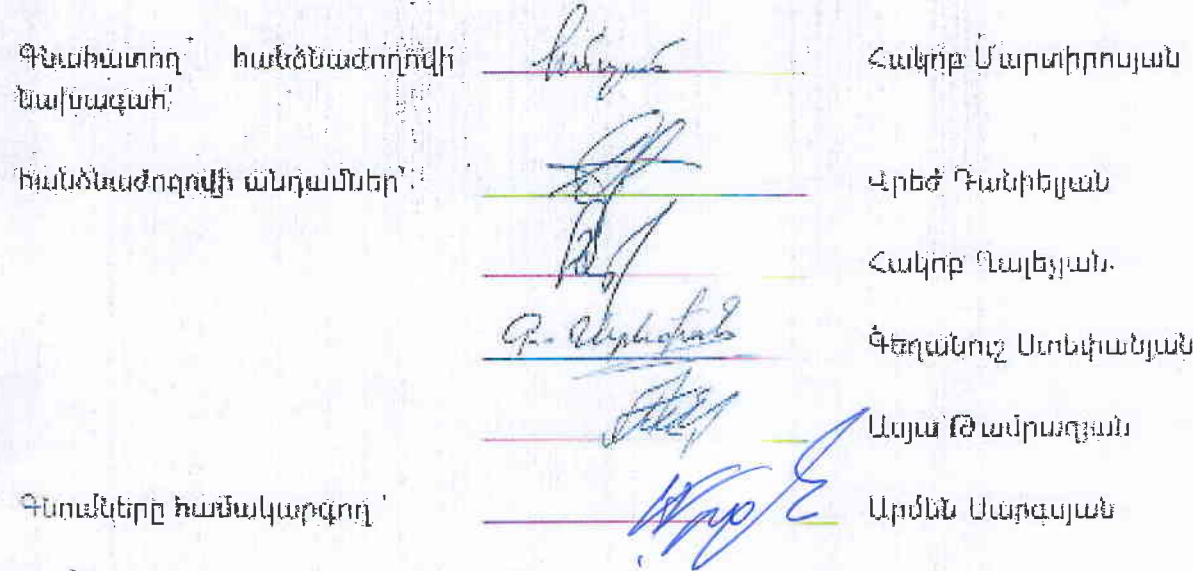 Գնահատող հանձնաժողովի Հակոբ Մարտիրոսյան
նախագահ՝
հանձնաժողովի անդամներ՝ Վրեժ Դանիելյան
Հակոբ Ղալեչյան
Գեղանուշ Ստեփանյան
Ասյա Թամրազյան
Գնումները համակարգող՝ Արմեն Սարգսյան